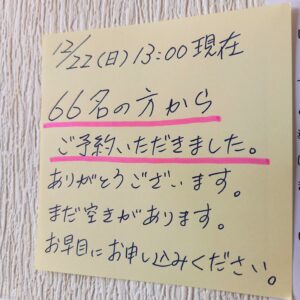 12/22(日)13:00現在
66名の方から
ご予約いただきました。
ありがとうございます。
まだ空きがあります。
お早目にお申し込みください。